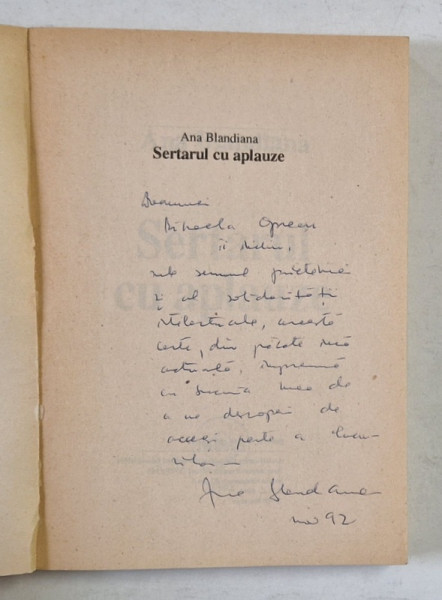 Ana Blandiana
Sertarul cu aplauze
Doamnei
Mihaela
îi dedic,
sub semnul prieteniei
și al solidarității
intelectuale, această
carte, din păcate încă
actuală, împreună
cu bucuria mea de
a ne descoperi de
aceeași parte a lucru-
rilor —
Ana Blandiana
92